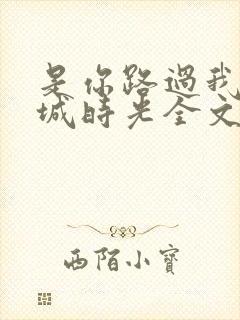 是你路過我
城時光全文
西陌小寶